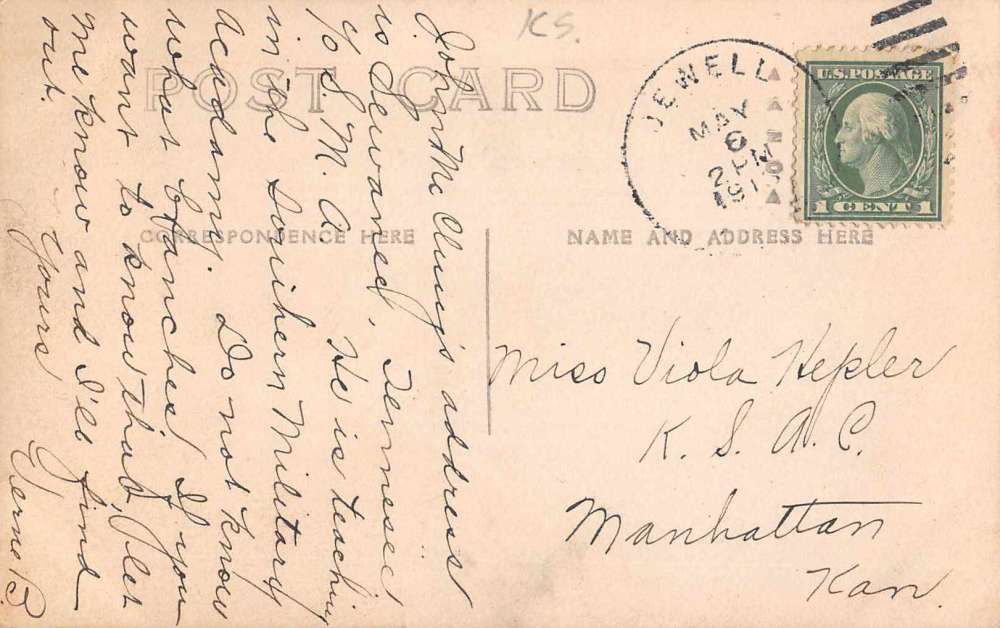 KS.
POST CARD
JEWELL
MAY
6
2 PM
KANS
U.S. POSTAGE
1 CENT 1
CORRESPONDENCE HERE
NAME AND ADDRESS HERE
John McClung's address
is Sewanee, Tennessee
c/o S. M. A. He is teaching
in the Southern Military
Acadamy. Do not know
what branches. If you
want to know that, let
me know and I'll find
out. Yours
Verne B.
Miss Viola Hepler
K. S. A. C.
Manhattan
Kan.